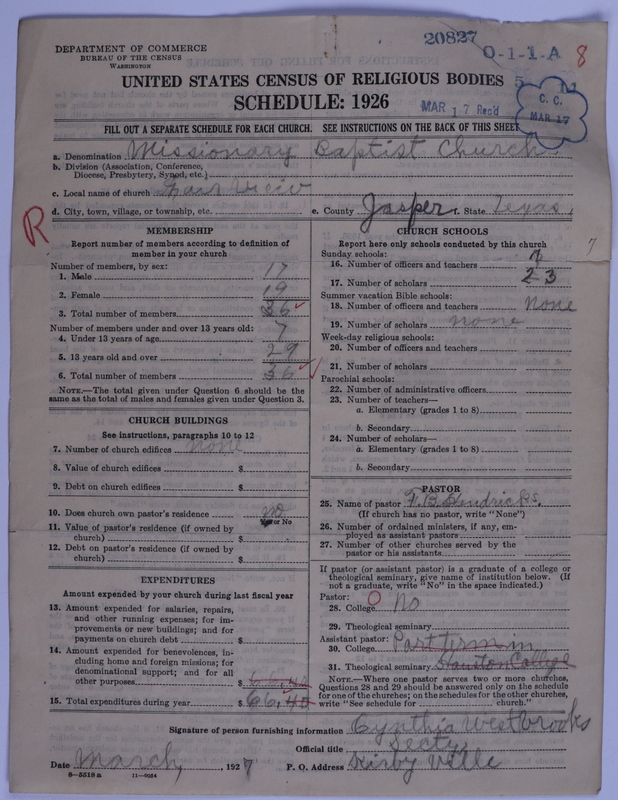 DEPARTMENT OF COMMERCE
BUREAU OF THE CENSUS
WASHINGTON
20827
0-1-1-A
8
UNITED STATES CENSUS OF RELIGIOUS BODIES
SCHEDULE: 1926
MAR 17 Rec'd
C. C.
MAR 17
FILL OUT A SEPARATE SCHEDULE FOR EACH CHURCH. SEE INSTRUCTIONS ON THE BACK OF THIS SHEET
a. Denomination Missionary Baptist Church
b. Division (Association, Conference,
Diocese, Presbytery, Synod, etc.)
c. Local name of church Fair View
d. City, town, village, or township, etc. e. County Jasper f. State Texas
R
MEMBERSHIP
Report number of members according to definition of
member in your church
Number of members, by sex:
1. Male 17
2. Female 19
3. Total number of members 36
Number of members under and over 13 years old:
4. Under 13 years of age 7
5. 13 years old and over 29
6. Total number of members 36
NOTE.—The total given under Question 6 should be the
same as the total of males and females given under Question 3.
CHURCH BUILDINGS
See instructions, paragraphs 10 to 12
7. Number of church edifices none
8. Value of church edifices $
9. Debt on church edifices $
10. Does church own pastor's residence no
Yes or No
11. Value of pastor's residence (if owned by
church) $
12. Debt on pastor's residence (if owned by
church) $
EXPENDITURES
Amount expended by your church during last fiscal year
13. Amount expended for salaries, repairs,
and other running expenses; for im-
provements or new buildings; and for
payments on church debt $
14. Amount expended for benevolences, in-
cluding home and foreign missions; for
denominational support; and for all
other purposes $ 66.40
15. Total expenditures during year $ 66.40
CHURCH SCHOOLS
Report here only schools conducted by this church
Sunday schools:
16. Number of officers and teachers 7
7
17. Number of scholars 23
Summer vacation Bible schools:
18. Number of officers and teachers none
19. Number of scholars none
Week-day religious schools:
20. Number of officers and teachers
21. Number of scholars
Parochial schools:
22. Number of administrative officers
23. Number of teachers—
a. Elementary (grades 1 to 8)
b. Secondary
24. Number of scholars—
a. Elementary (grades 1 to 8)
b. Secondary
PASTOR
25. Name of pastor F. B. Hendricks.
(If church has no pastor, write "None")
26. Number of ordained ministers, if any, em-
ployed as assistant pastors
27. Number of other churches served by the
pastor or his assistants
If pastor (or assistant pastor) is a graduate of a college or
theological seminary, give name of institution below. (If
not a graduate, write "No" in the space indicated.)
Pastor:
28. College O No
29. Theological seminary
Assistant pastor:
30. College Part term in
31. Theological seminary Houston College
NOTE.—Where one pastor serves two or more churches,
Questions 28 and 29 should be answered only on the schedule
for one of the churches; on the schedules for the other churches,
write "See schedule for church."
Signature of person furnishing information Cynthia Westbrooks
Official title Secty
Date March, 1927 P. O. Address Kirby Ville
8—5518 a 11—9164